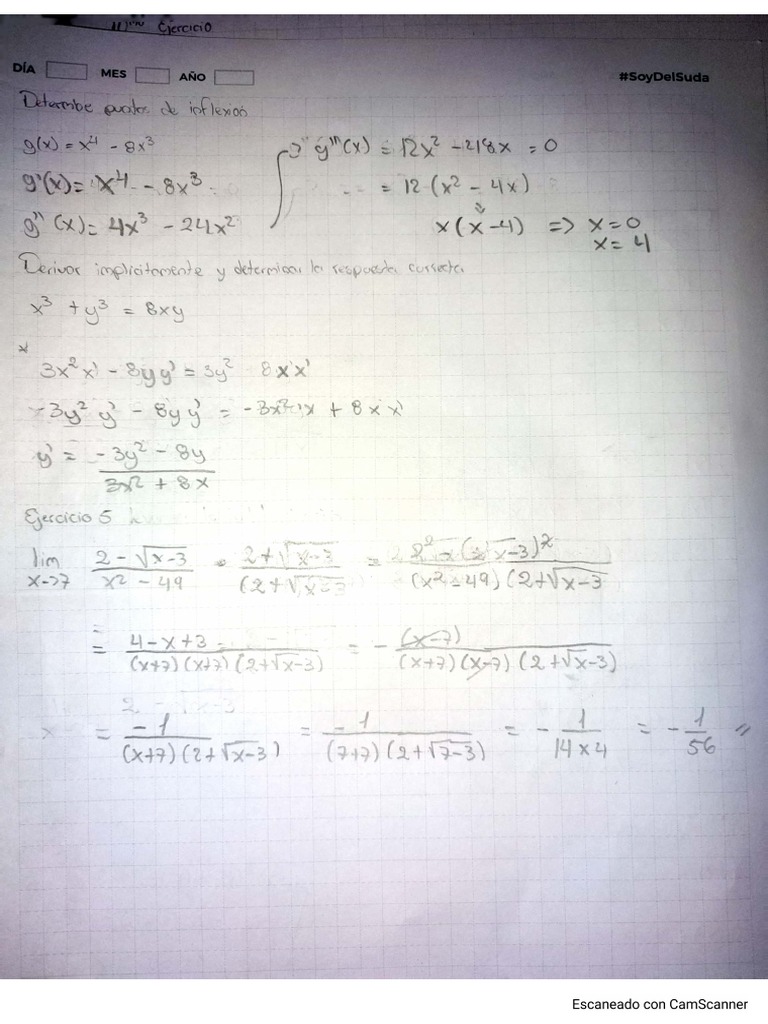 Ejercicio
DÍA MES AÑO #SoyDelSuda
Determine puntos de inflexión
g(x) = x⁴ - 8x³
g'(x) = x⁴ - 8x³
g''(x) = 4x³ - 24x²
g'''(x) = 12x² - 218x = 0
= 12 (x² - 4x)
x(x-4) => x=0
x=4
Derivar implicitamente y determinar la respuesta correcta
x³ + y³ = 8xy
*
3x² x' - 8y y' = 3y² 8x x'
-3y² y' - 8y y' = -3x² x + 8x x'
y' = (-3y² - 8y) / (3x² + 8x)
Ejercicio 5
lim x->7 (2 - √x-3) / (x² - 49) • (2 + √x-3) / (2 + √x-3) = (2² - (√x-3)²) / ((x² - 49)(2 + √x-3)
= (4 - x + 3) / ((x+7)(x+7)(2+√x-3)) = - (x-7) / ((x+7)(x-7)(2+√x-3))
2 - √x-3
= -1 / ((x+7)(2+√x-3)) = -1 / ((7+7)(2+√7-3)) = - 1 / (14 x 4) = - 1/56 //
Escaneado con CamScanner